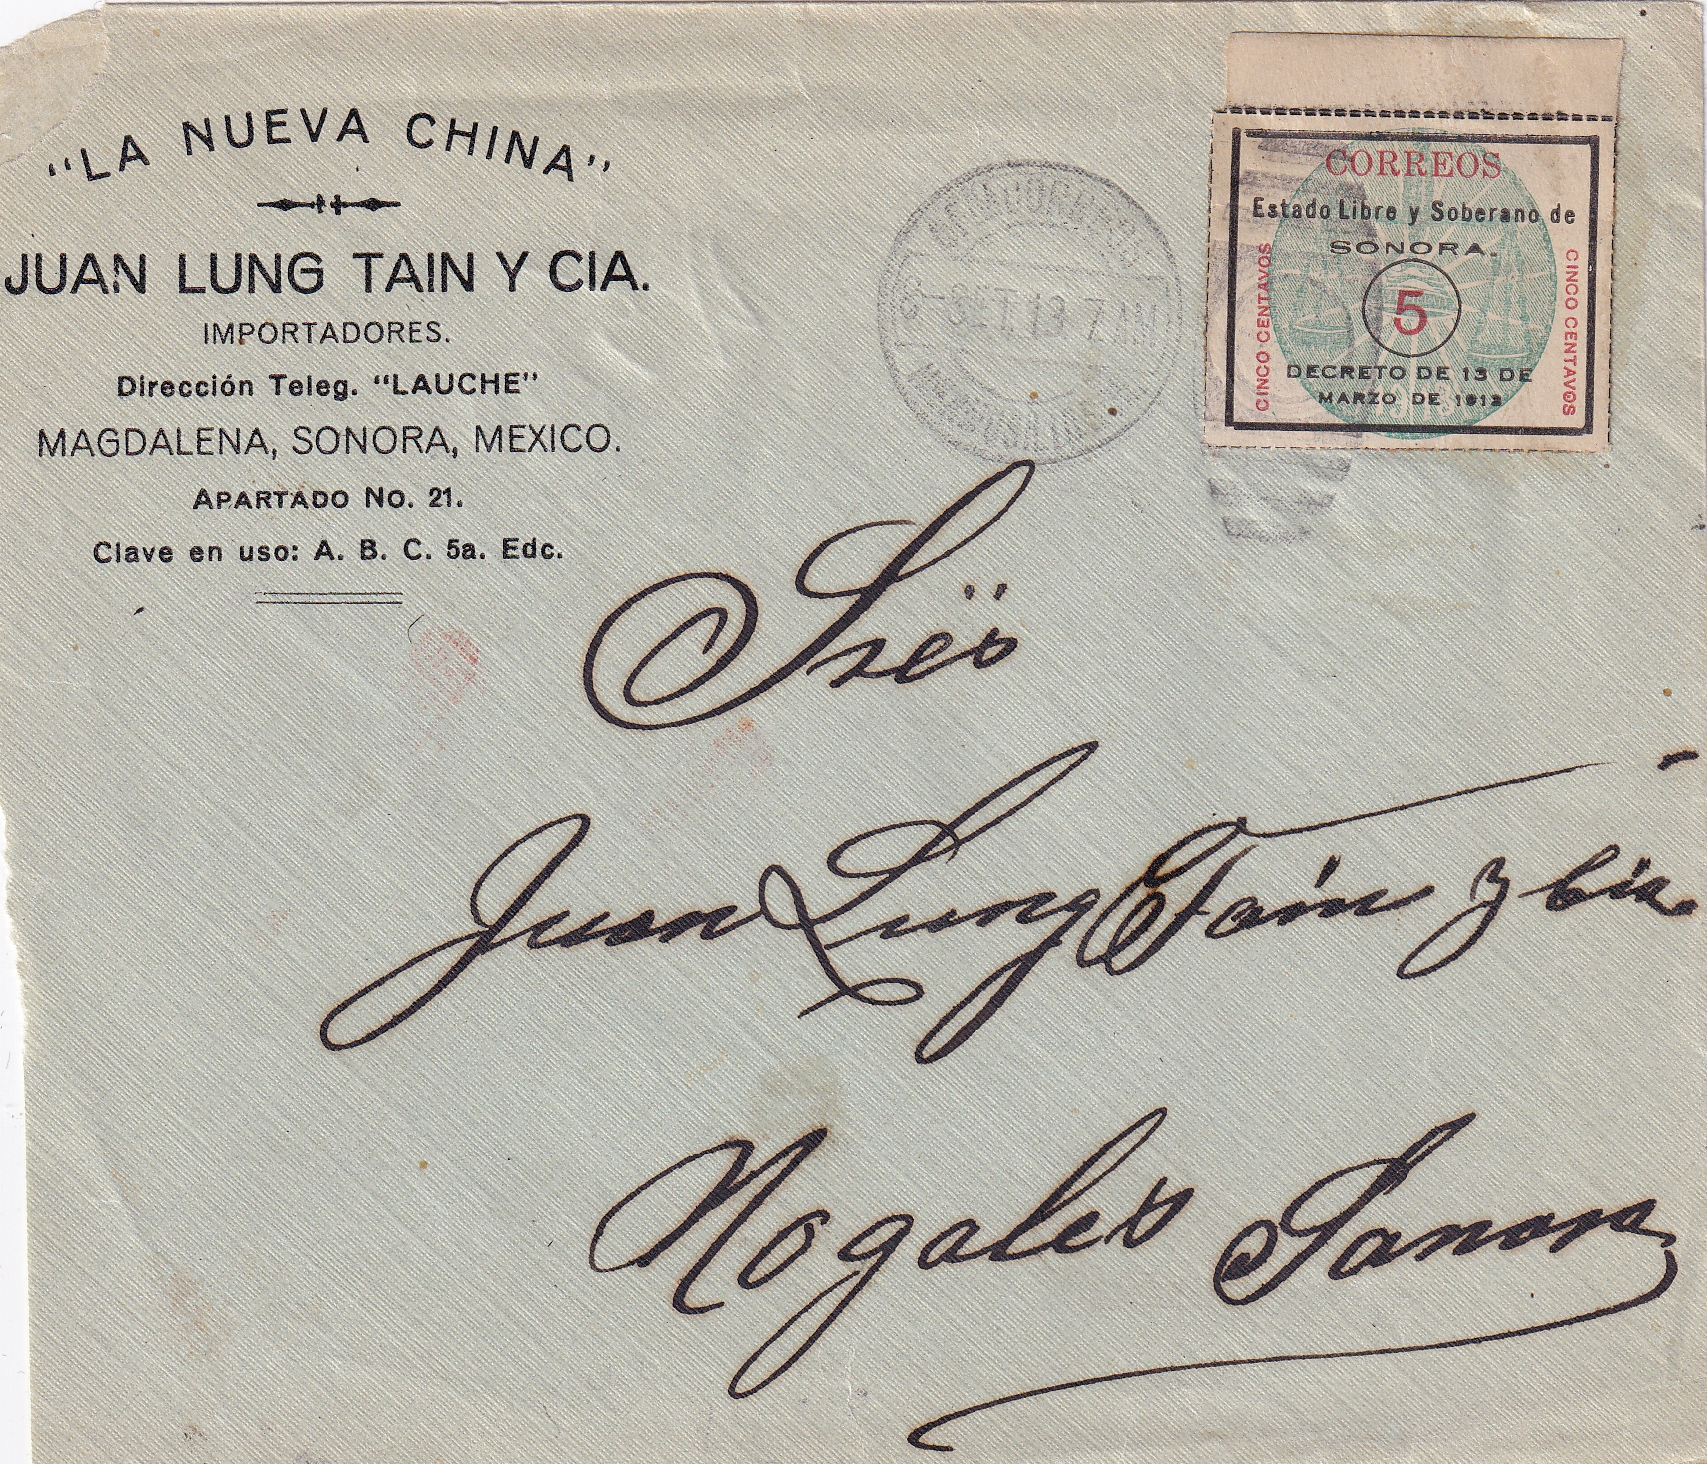 "LA NUEVA CHINA"
JUAN LUNG TAIN Y CIA.
IMPORTADORES.
Dirección Teleg. "LAUCHE"
MAGDALENA, SONORA, MEXICO.
APARTADO No. 21.
Clave en uso: A. B. C. 5a. Edc.
CORREOS
Estado Libre y Soberano de
SONORA.
CINCO CENTAVOS
5
CINCO CENTAVOS
DECRETO DE 13 DE
MARZO DE 1913
Sres
Juan Lung Tain y Cia.
Nogales Sonora